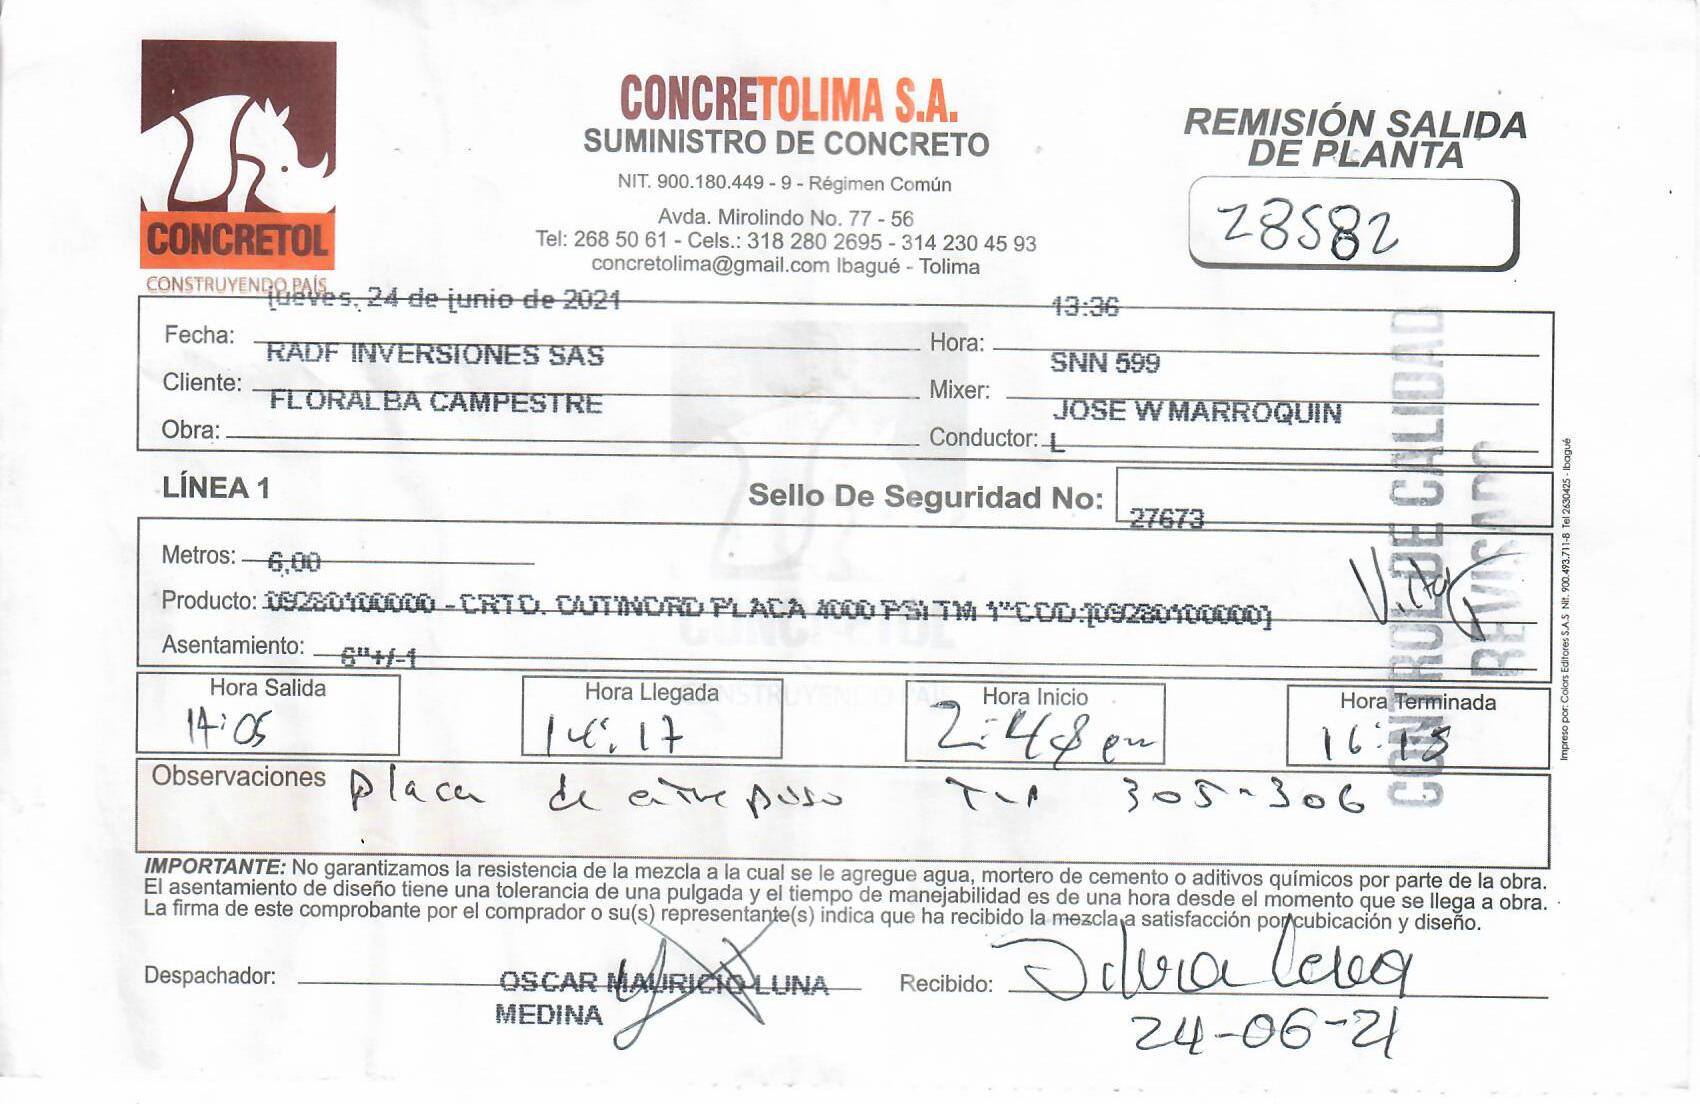 CONCRETOL
CONSTRUYENDO PAÍS
CONCRETOLIMA S.A.
SUMINISTRO DE CONCRETO
NIT. 900.180.449 - 9 - Régimen Común
Avda. Mirolindo No. 77 - 56
Tel: 268 50 61 - Cels.: 318 280 2695 - 314 230 45 93
concretolima@gmail.com Ibagué - Tolima
REMISIÓN SALIDA
DE PLANTA
28582
Fecha: jueves, 24 de junio de 2021 Hora: 13:36
Cliente: RADF INVERSIONES SAS Mixer: SNN 599
Obra: FLORALBA CAMPESTRE Conductor: JOSE W MARROQUIN L
LÍNEA 1 Sello De Seguridad No: 27673
Metros: 6,00
Producto: 09280100000 - CRTO. OUTINORD PLACA 4000 PSI TM 1" COD:[09280100000]
Asentamiento: 6"+/-1
CONTROL DE CALIDAD
REVISADO
Hora Salida 14:05
Hora Llegada 14:17
Hora Inicio 2:48 pm
Hora Terminada 16:18
Observaciones Placa de entrepiso 305-306
IMPORTANTE: No garantizamos la resistencia de la mezcla a la cual se le agregue agua, mortero de cemento o aditivos químicos por parte de la obra.
El asentamiento de diseño tiene una tolerancia de una pulgada y el tiempo de manejabilidad es de una hora desde el momento que se llega a obra.
La firma de este comprobante por el comprador o su(s) representante(s) indica que ha recibido la mezcla a satisfacción por cubicación y diseño.
Despachador: OSCAR MAURICIO LUNA
MEDINA
Recibido:
24-06-21
Impreso por: Colors Editores S.A.S Nit. 900.493.711-8 Tel 2630425 - Ibagué